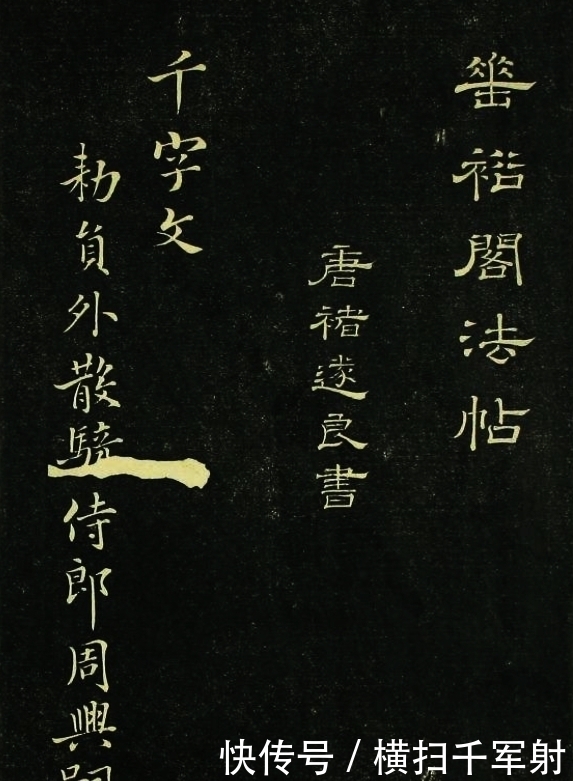 垂裕閣法帖
唐褚遂良書
千字文
勅員外散騎侍郎周興嗣
快传号 / 横扫千军射